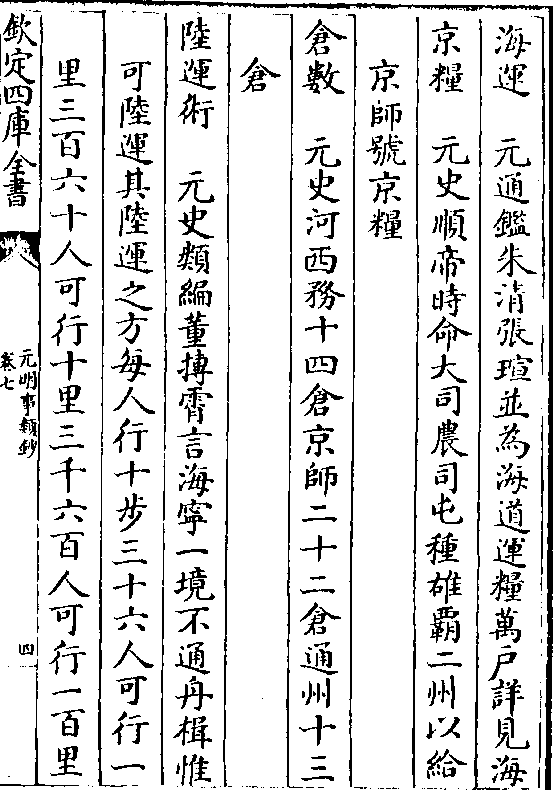 海運　元通鑑朱清張瑄並為海道運糧萬戶詳見海
京糧　元史順帝時命大司農司屯種雄霸二州以給
京師號京糧
倉數　元史河西務十四倉京師二十二倉通州十三
倉
陸運術　元史類編董摶霄言海寧一境不通舟楫惟
可陸運其陸運之方每人行十步三十六人可行一
里三百六十人可行十里三千六百人可行一百里
欽定四庫全書
元明事類鈔
卷七
四